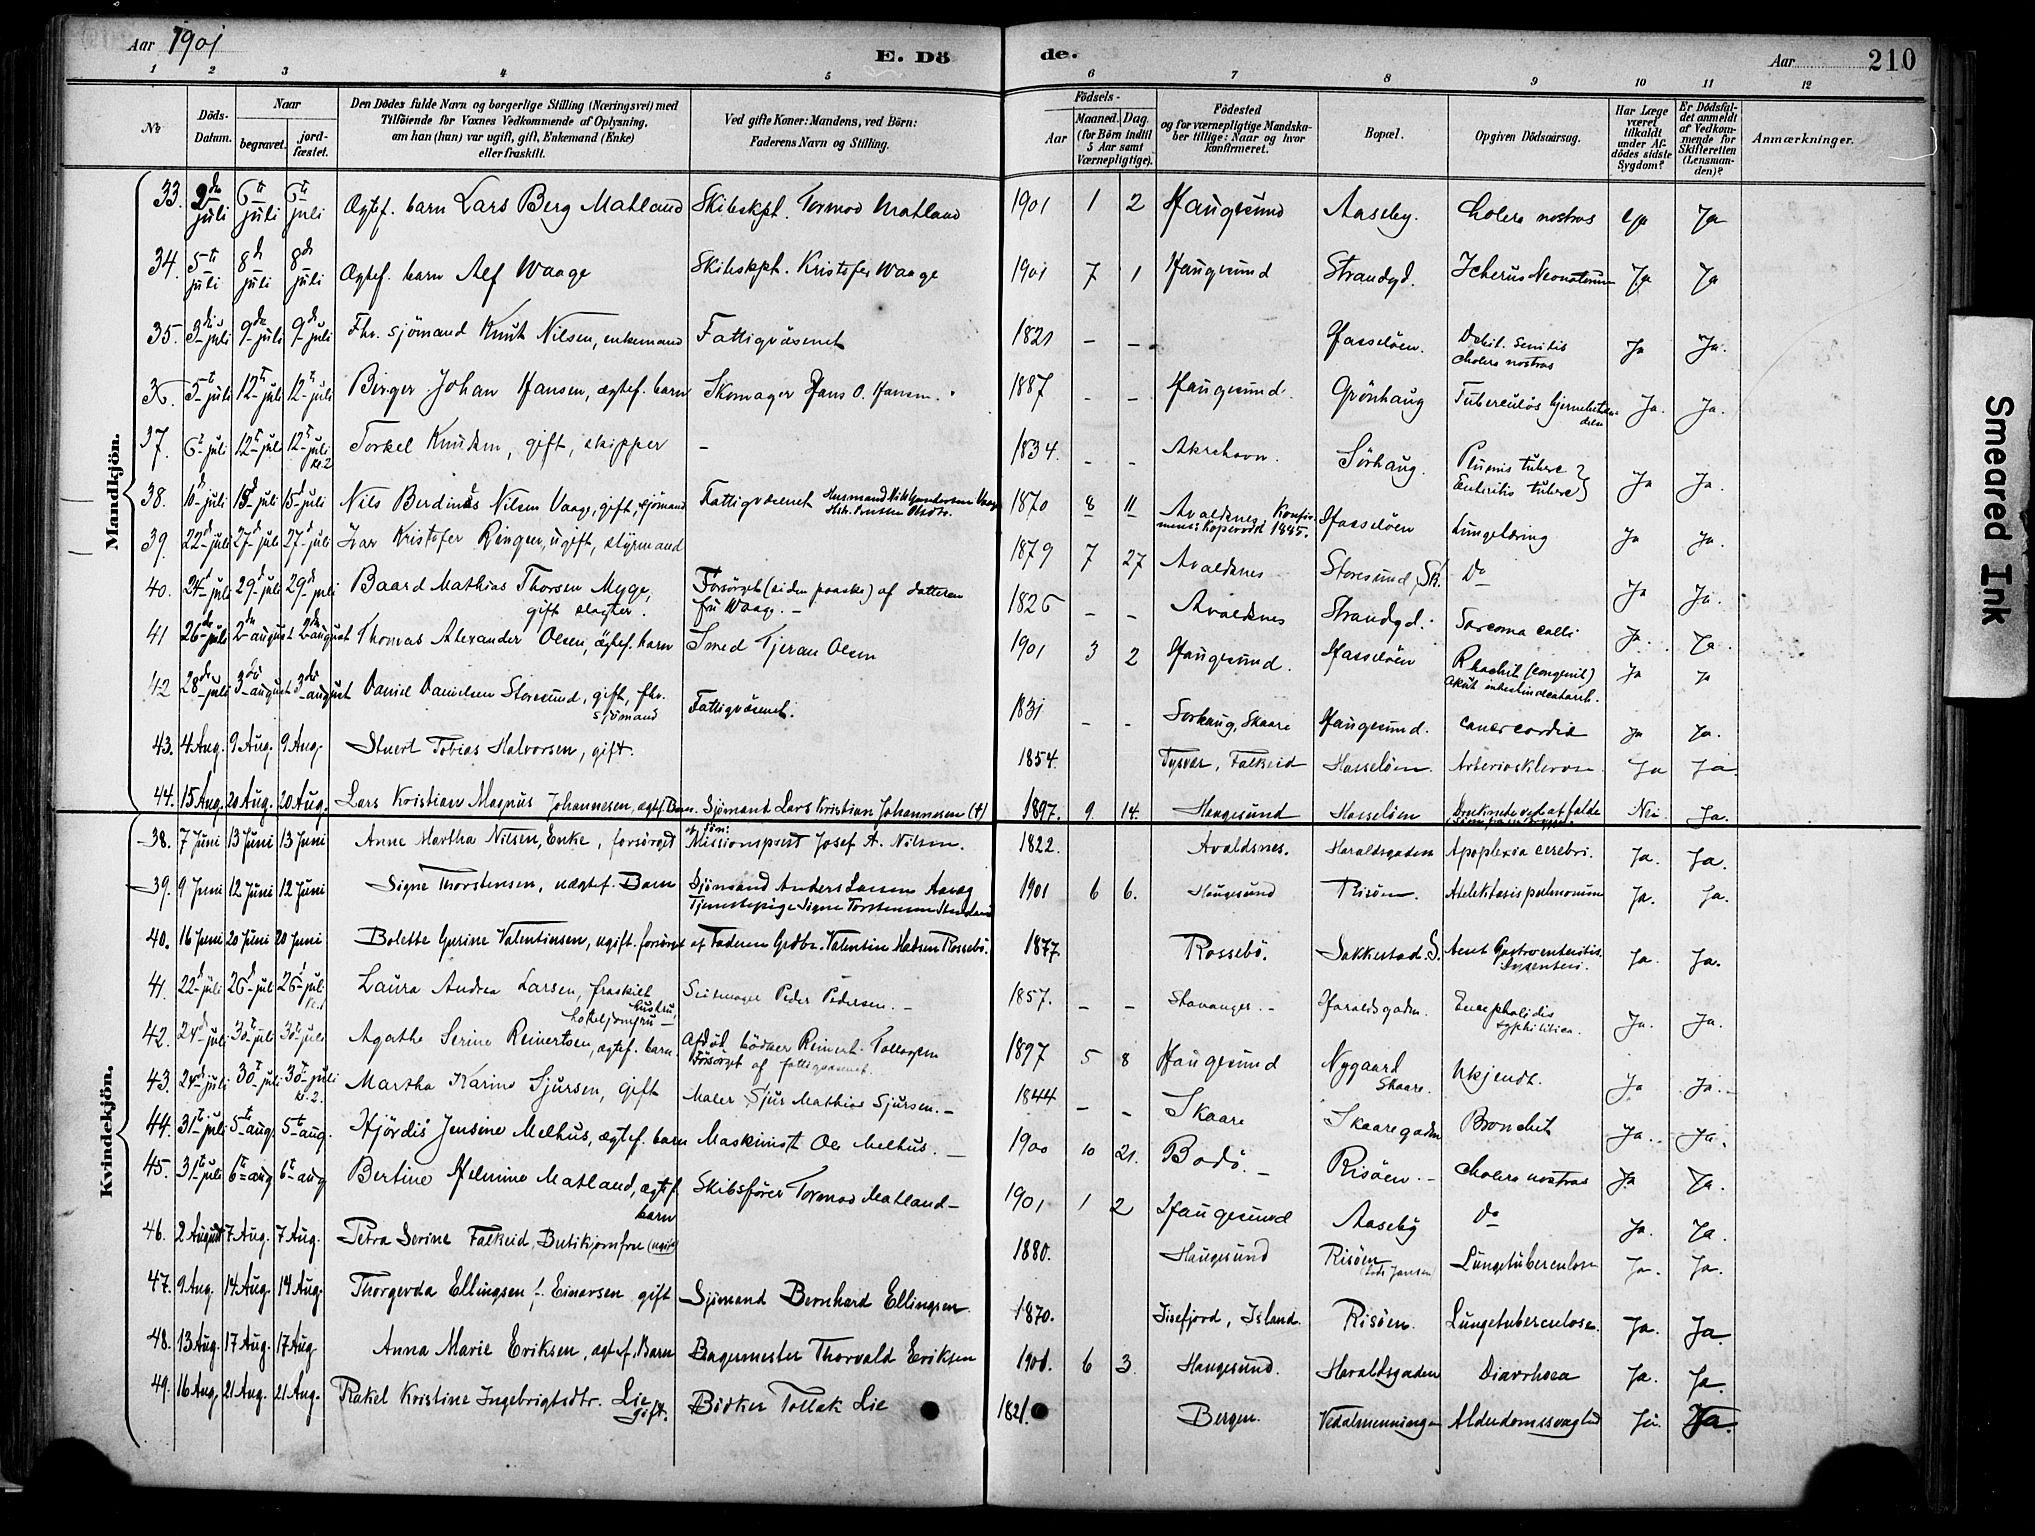 Aar 1901
E. Dö
de.
Aar
210
1 2 3 4 5 6 7 8 9 10 11 12
No
Döds-Datum.
Naar
begravet.
jord-fæstet.
Den Dödes fulde Navn og borgerlige Stilling (Næringsvei) med
Tilföiende for Voxnes Vedkommende af Oplysning,
om han (hun) var ugift, gift, Enkemand (Enke)
eller fraskilt.
Ved gifte Koner: Mandens, ved Börn:
Faderens Navn og Stilling.
Födsels-
Aar
Maaned. Dag.
(for Börn indtil
5 Aar samt
Værnepligtige).
Födested
og for værnepligtige Mandska-
ber tillige: Naar og hvor
konfirmeret.
Bopæl.
Opgiven Dödsaarsag.
Har Læge
været
tilkaldt
under Af-
dödes sidste
Sygdom?
Er Dödsfal-
det anmeldt
af Vedkom-
mende for
Skifteretten
(Lensman-
den)?
Anmærkninger.
Mandkjön.
33. 2den juli 6te juli 6te juli Ægtef. barn Lars Berg Matland Skibskpt. Tormod Matland 1901 1 2 Haugesund Aaseby. Cholera nostras Ja Ja
34. 5te juli 8de juli 8de juli Ægtef. barn Alf Waage Skibskpt. Kristofer Waage 1901 7 1 Haugesund Strandgd. Icterus Neonatorum Ja Ja
35. 3die juli 9de juli 9de juli Fhv. sjömand Knut Nilsen, enkemand Fattigvæsenet 1821 – – Hasselöen. Debil. senilis
cholera nostras Ja Ja.
36. 5te juli 12te juli 12te juli Birger Johan Hansen, ægtef. barn Skomager Hans O. Hansen. 1887 – – Haugesund. Grönhaug Tuberculös hjernebetændelse Ja. Ja.
37. 6te juli 12te juli 12te juli kl 2 Torkel Knudsen, gift, skipper – 1834. – – Akrehavn. Sörhaug. tuberc
Enteritis tuberc Ja Ja.
38. 10de juli 15de juli 15de juli Nils Berdines Nilsen Vaage, gift, sjömand Fattigvæsenet Husmand Nils Vaage 1870 8 11 Avaldsnes, Konfirmeret: Kopervik 1885. Hasselöen Lungetæring Ja Ja.
39. 22de juli 27de juli 27de juli Kristofer Ringen, ugift, styrmand 1879 7 27 Avaldsnes Storesund, Sk. Do Ja Ja.
40. 24de juli 29de juli 29de juli Baard Mathias Thorsen Myge,
gift slagter. Forsörget (siden paaske) af datteren
fru Waage. – 1826 – – Avaldsnes Strandgd. Sarcoma colli Ja. Ja
41 26de juli 2den august 2den august Thomas Alexander Olsen, ægtef. barn Smed Tjeran Olsen 1901 3 2 Haugesund. Hasselöen Rhachit (congenit)
akut intestinalcatarrh. Ja Ja
42 28de juli 3die august 3die august Daniel Danielsen Storesund, gift, fhv.
sjömand Fattigvæsenet. 1831 – – Sörhaug, Skaare Haugesund. cancer cardia Ja Ja.
43. 4 Aug. 9 Aug. 9 Aug. Sivert Tobias Halvorsen, gift. 1854. Tysvær, Falkeid Hasselöen. Arteriosklerose Ja Ja.
44. 15 Aug. 20 Aug. 20 Aug. Lars Kristian Magnus Johannesen, ægtef. Barn. Sjömand Lars Kristian Johannesen (+) 1897. 9. 14. Haugesund Hasselöen Druknede ved at falde Nei Ja.
Kvindekjön.
38. 7 Juni 13 Juni 13 Juni Anne Martha Nilsen, Enke, forsörget af sön:
Missionsprest Josef A. Nilsen. 1822. Avaldsnes. Haraldsgaden Apoplexia cerebri. Ja. Ja.
39. 9 Juni 12 Juni 12 Juni Signe Thorstensen, uægtef. Barn Sjömand Anders Larsen
Tjenestepige Signe Torstensen 1901 6 6. Haugesund Risöen. Atelektasis pulmonum Ja. Ja.
40. 16 Juni 20 Juni 20 Juni Bolette Gurine Valentinsen, ugift. forsörget af Faderen Grdbr. Valentin Rossebö. 1877. Rossebö. Sakkestad. S. Acut Gastroenteritis.
Dysenteri. Ja. Ja.
41. 22de juli 26de juli 26de juli kl. 1 Laura Andrea Larsen, fraskilt
hustru,
hoteljomfru – Seilmager Peder Pedersen. – 1857. – – Stavanger. – Haraldsgaden. Encephalidis
syphilitica. Ja. Ja.
42. 24de juli 30te juli 30te juli Agathe Serine Reinertsen, ægtef. barn. Afdöd bödker Reinert Tollagsen
Forsörget af fattigvæsenet. 1897 5 8 Haugesund Nygaard
Skaare. Ukjendt. Ja Ja.
43. 24de juli 30te juli 30te juli kl. 2. Martha Karine Sjursen, gift Maler Sjur Mathias Sjursen. – 1844 – – Skaare Skaaregaden Bronchit Ja. Ja.
44. 31te juli 5te aug. 5te aug. Hjördis Jensine Melhus, ægtef. barn Maskinist Ole Melhus. – 1900 10 21. Bodö. – Risöen. – Cholera nostras Ja Ja.
45. 31te juli 6te aug 6te aug Bertine Helmine Matland, ægtef.
barn Skibsförer Tormod Matland – 1901 1 2 Haugesund Aaseby Do Ja. Ja.
46. 2 August 7 Aug. 7 Aug. Petra Serine Falkeid, Butikjomfru (ugift) 1880. Haugesund Risöen Lungetuberculose Ja. Ja.
47. 9 Aug. 14 Aug. 14 Aug. Thorgerda Ellingsen f. Einarsen gift Sjömand Bernhard Ellingsen 1870. Isefjord, Island. Risöen. Lungetuberculose. Ja. Ja
48. 13 Aug. 17 Aug. 17 Aug. Anna Marie Eriksen, ægtef. Barn Bagermester Thorvald Eriksen 1901. 6 3. Haugesund. Haraldsgaden Diarrhoea Ja. Ja.
49. 16 Aug. 21 Aug. 21 Aug. Rakel Kristine Ingebrigtsdtr. Lie
gift. Bödker Tollak Lie 1821. Bergen. Vedalmenningen Alderdomssvaghed Ja. Ja.
Smeared Ink